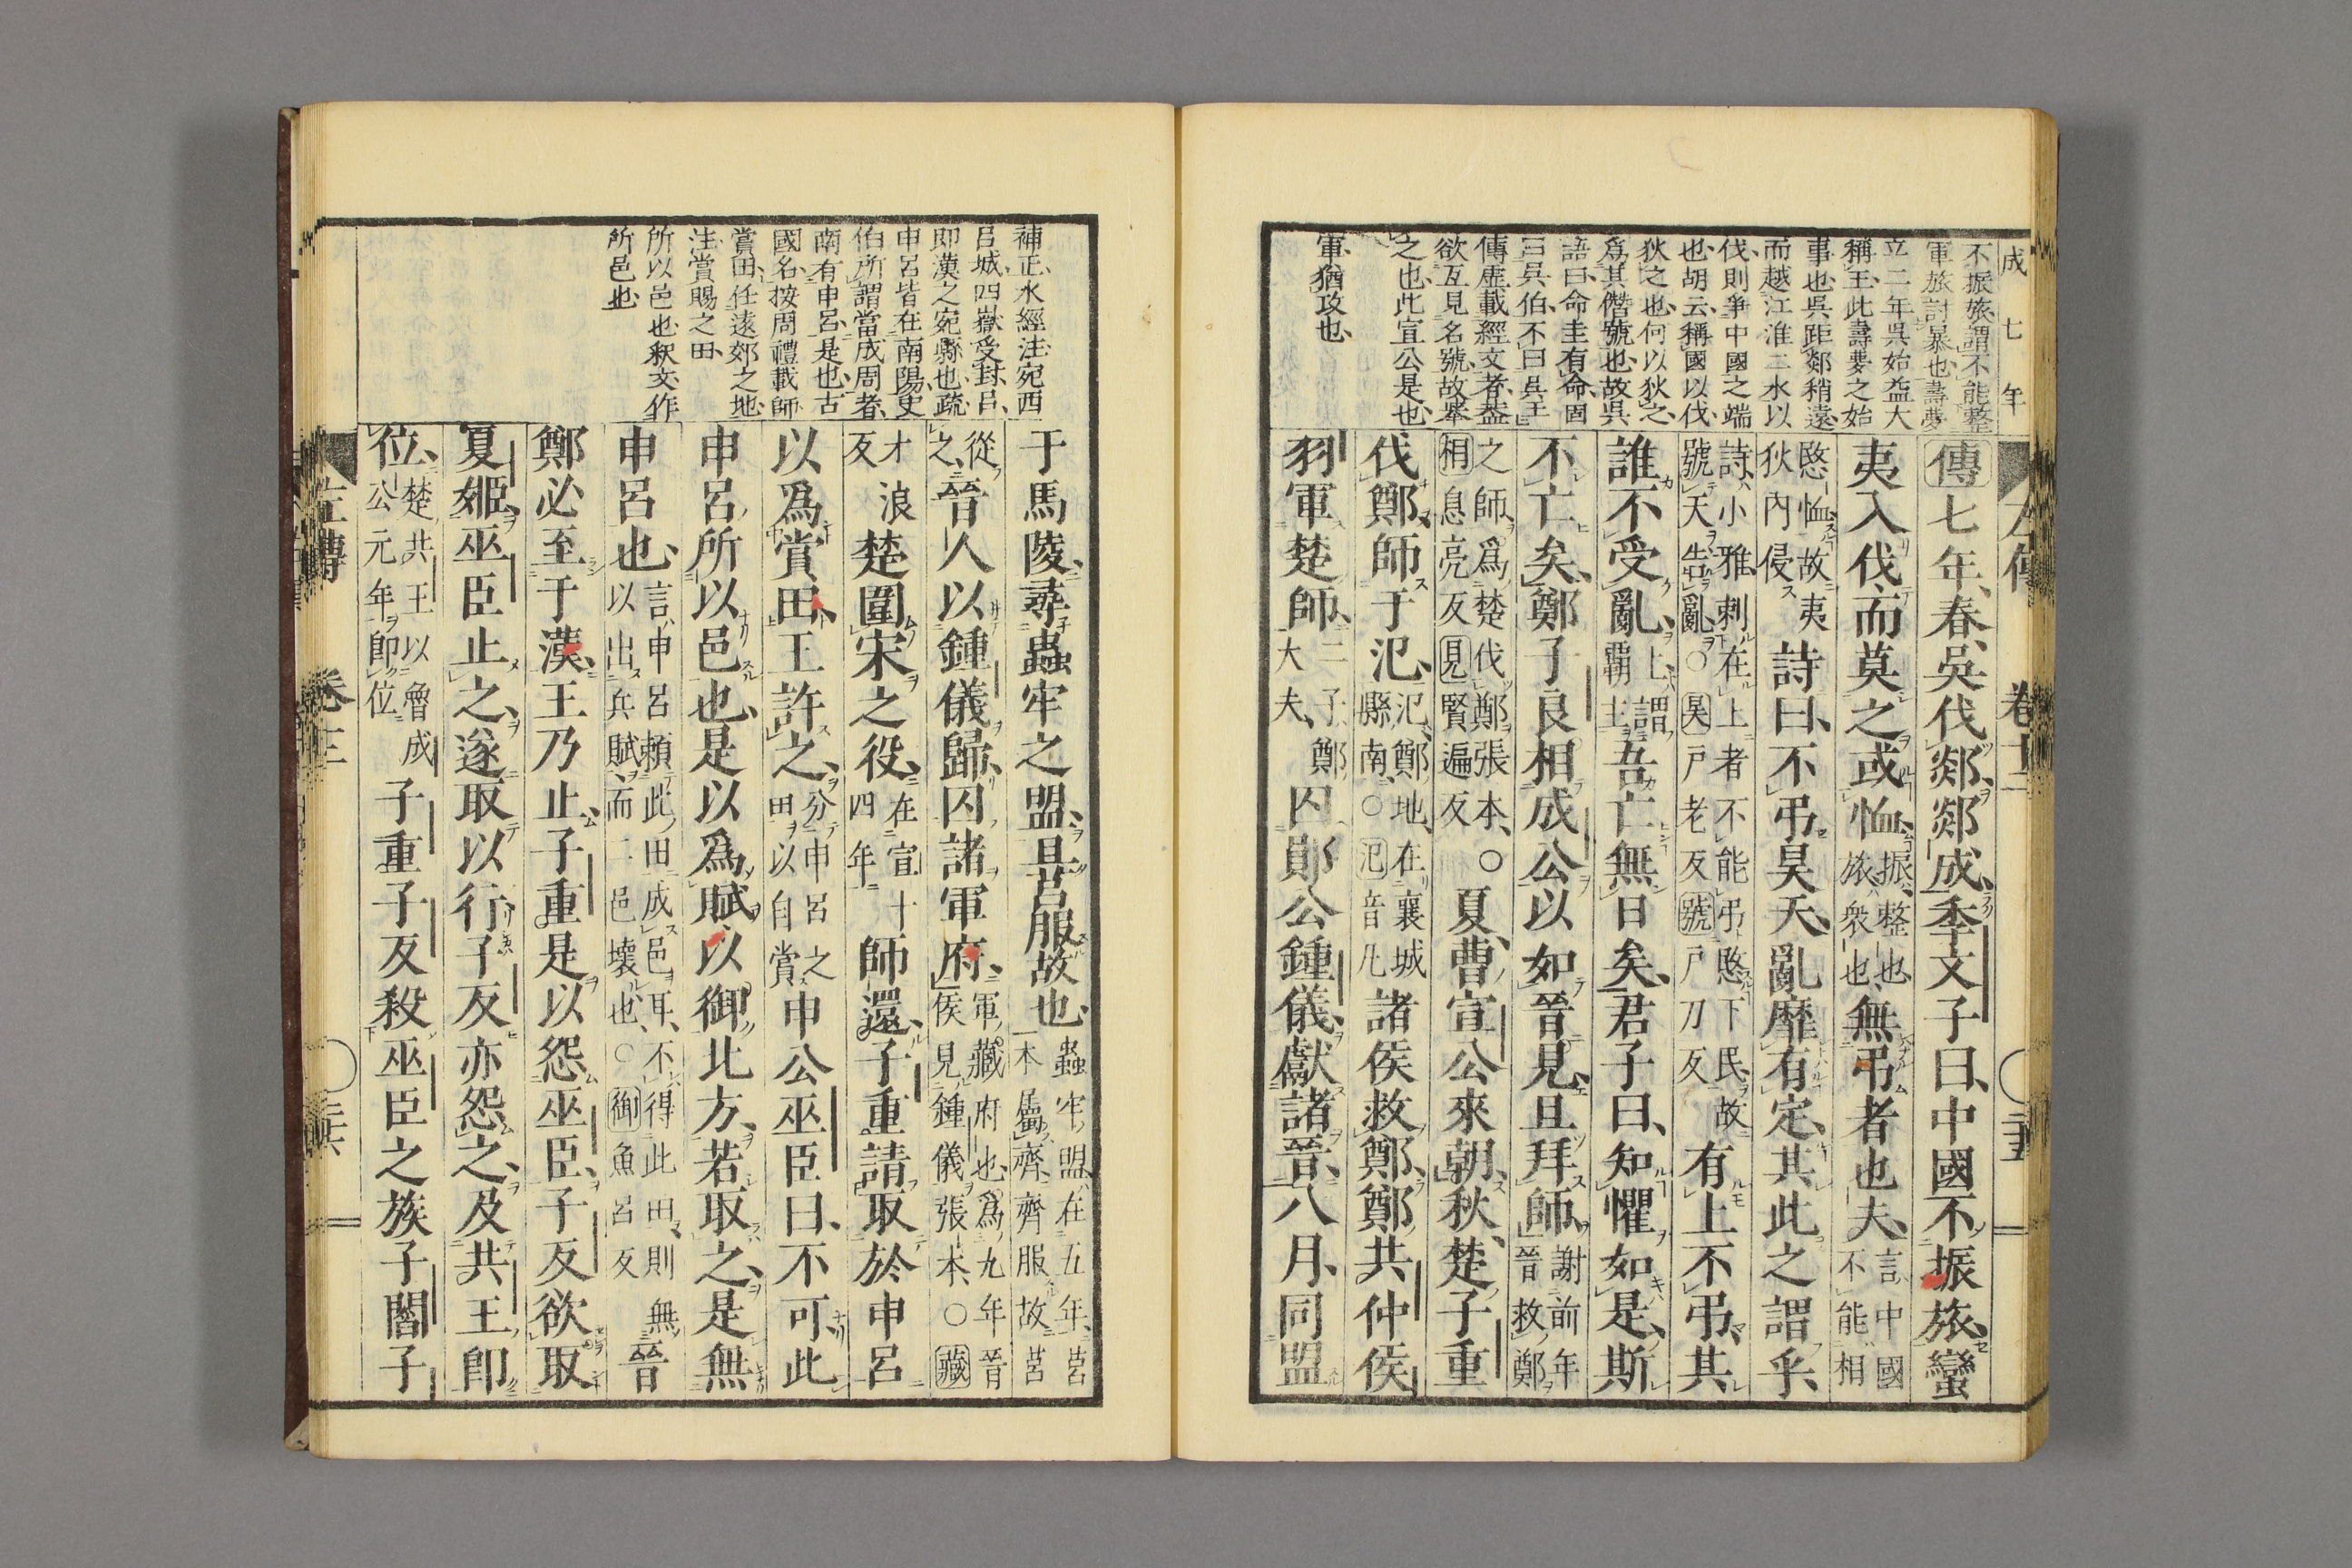 成七年
不振旅謂不能整
軍旅討暴也壽夢
立二年吳始益大
稱王此壽夢之始
事也吳距郯稍遠
而越江淮二水以
伐則爭中國之端
也胡云稱國以伐
狄之也何以狄之
爲其僭號也故吳
語曰命圭有命固
曰吳伯不曰吳王
傳虛載經文者蓋
欲互見名號故舉
之也此宣公是也
軍猶攻也
傳七年春吳伐郯郯成季文子曰中國不振旅蠻
夷入伐而莫之或恤振整也旅衆也無弔者也夫言中國不能相
愍恤故夷狄內侵詩曰不弔昊天亂靡有定其此之謂乎
詩小雅刺在上者不能弔愍下民故號天告亂○昊戶老反號戶刀反有上不弔其
誰不受亂上謂霸主吾亡無日矣君子曰知懼如是斯
不亡矣鄭子良相成公以如晉見且拜師謝前年晉救鄭
之師爲楚伐鄭張本○相息亮反見賢遍反夏曹宣公來朝秋楚子重
伐鄭師于汜汜鄭地在襄城縣南○汜音凡諸侯救鄭鄭共仲侯
羽軍楚師二子鄭大夫囚鄖公鍾儀獻諸晉八月同盟
補正水經注宛西
呂城四嶽受封呂
即漢之宛縣也疏
申呂皆在南陽史
伯所謂當成周者
南有申呂是也古
國名按周禮載師
賞田任遠郊之地
注賞賜之田
所以邑也釈文作
所邑也
于馬陵尋蟲牢之盟且莒服故也蟲牢盟在五年莒本屬齊齊服故莒
從之晉人以鍾儀歸囚諸軍府軍藏府也爲九年晉侯見鍾儀張本○藏
才浪反楚圍宋之役在宣十四年師還子重請取於申呂
以爲賞田王許之分申呂之田以自賞申公巫臣曰不可此
申呂所以邑也是以爲賦以御北方若取之是無
申呂也言申呂頼此田成邑耳不得此田則無以出兵賦而二邑壞也○御魚呂反晉
鄭必至于漢王乃止子重是以怨巫臣子反欲取
夏姬巫臣止之遂取以行子反亦怨之及共王即
位楚共王以魯成公元年即位子重子反殺巫臣之族子閻子
左傳